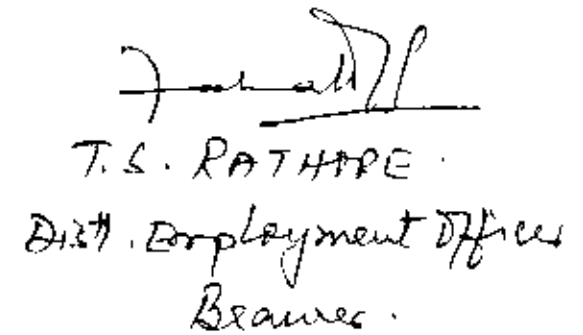 T.S. RATHORE.
Distt. Employment Officer
Beawer.